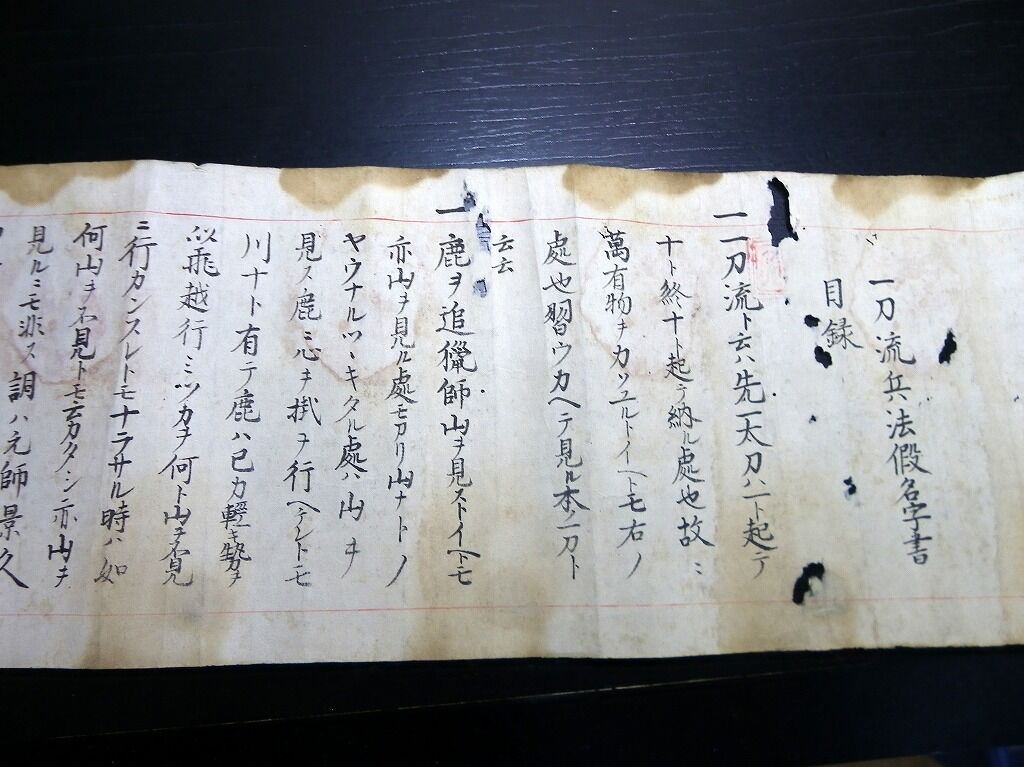 一刀流兵法假名字書
目録
一一刀流ト云ハ先一太刀ハ一ト起テ
十ト終十ト起テ納ル處也故ニ
萬有物ヲカソユルトイヘトモ右ノ
處也習ウカヘテ見ル本ノ一刀ト
云云
一鹿ヲ追獵師山ヲ見ストイヘトモ
亦山ヲ見ル處モアリ山ナトノ
ヤウナルツヽキタル處ハ山ヲ
見ス鹿ニ心ヲ掛テ行ヘケレトモ
川ナト有テ鹿ハ己カ輕キ勢ヲ
以飛越行ニツカヲ何ト山ヲ不見
ニ行カンスレトモナラサル時ハ如
何山ヲ不見トモ云カタシ亦山ヲ
見ルニモ非ス調ハ元師景久